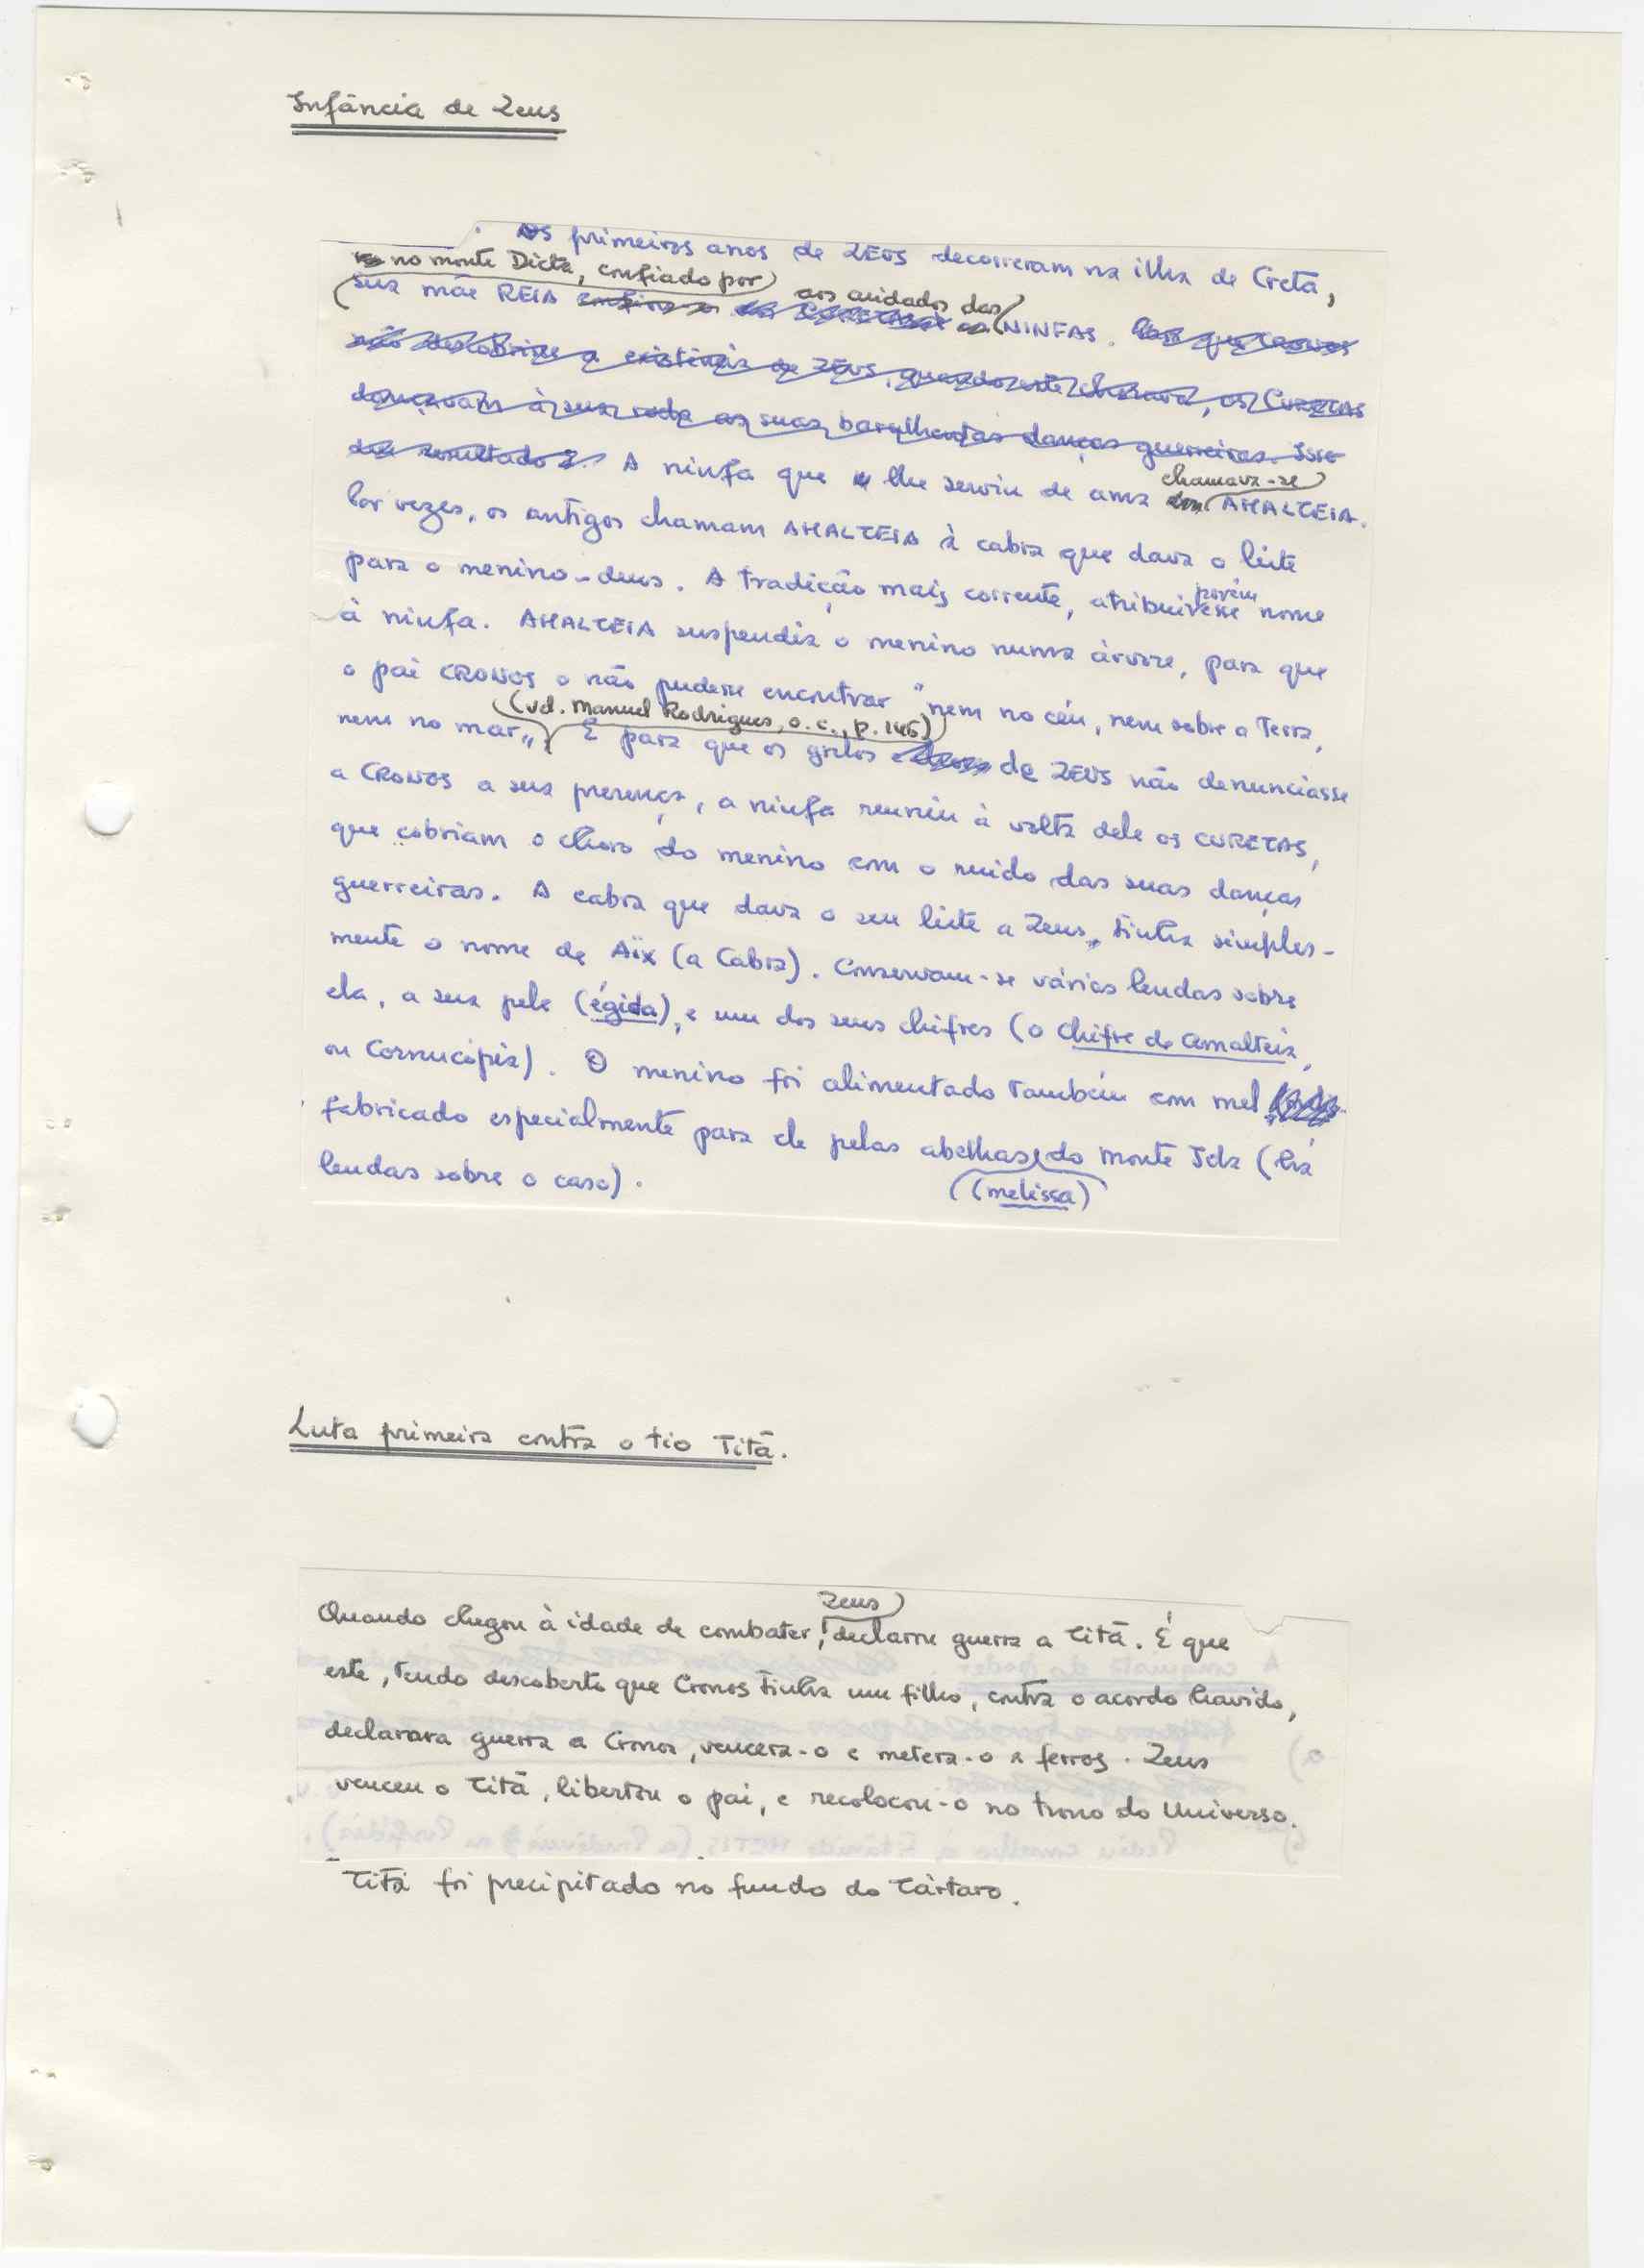 Infância de Zeus
Os primeiros anos de ZEUS decorreram na ilha de Creta,
no monte Dicta, confiado por
sua mãe REIA aos cuidados das NINFAS. Para que Cronos
não descobrisse a existência de ZEUS, quando este chorava, os CURETAS
dançavam à sua roda as suas barulhentas danças guerreiras. Isso
deu resultado. A ninfa que lhe serviu de ama chamava-se AMALTEIA.
Por vezes, os antigos chamam AMALTEIA à cabra que dava o leite
para o menino-deus. A tradição mais corrente, atribui porém esse nome
à ninfa. AMALTEIA suspendia o menino numa árvore, para que
o pai CRONOS o não pudesse encontrar "nem no céu, nem sobre a Terra,
(vd. Manuel Rodrigues, o. c., p. 146)
nem no mar". E para que os gritos de ZEUS não denunciasse
a CRONOS a sua presença, a ninfa reuniu à volta dele os CURETAS,
que cobriam o choro do menino com o ruido das suas danças
guerreiras. A cabra que dava o seu leite a Zeus, tinha simples-
mente o nome de Aïx (a Cabra). Conservam-se várias lendas sobre
ela, a sua pele (égida), e um dos seus chifres (o chifre de Amalteia,
ou Cornucópia). O menino foi alimentado também com mel
fabricado especialmente para ele pelas abelhas do monte Ida (há
lendas sobre o caso).
(melissa)
Luta primeira contra o tio Titã.
Quando chegou à idade de combater, Zeus declarou guerra a Titã. É que
este, tendo descoberto que Cronos tinha um filho, contra o acordo havido,
declarara guerra a Cronos, vencera-o e metera-o a ferros. Zeus
venceu o Titã, libertou o pai, e recolocou-o no trono do Universo.
Titã foi precipitado no fundo do Tártaro.